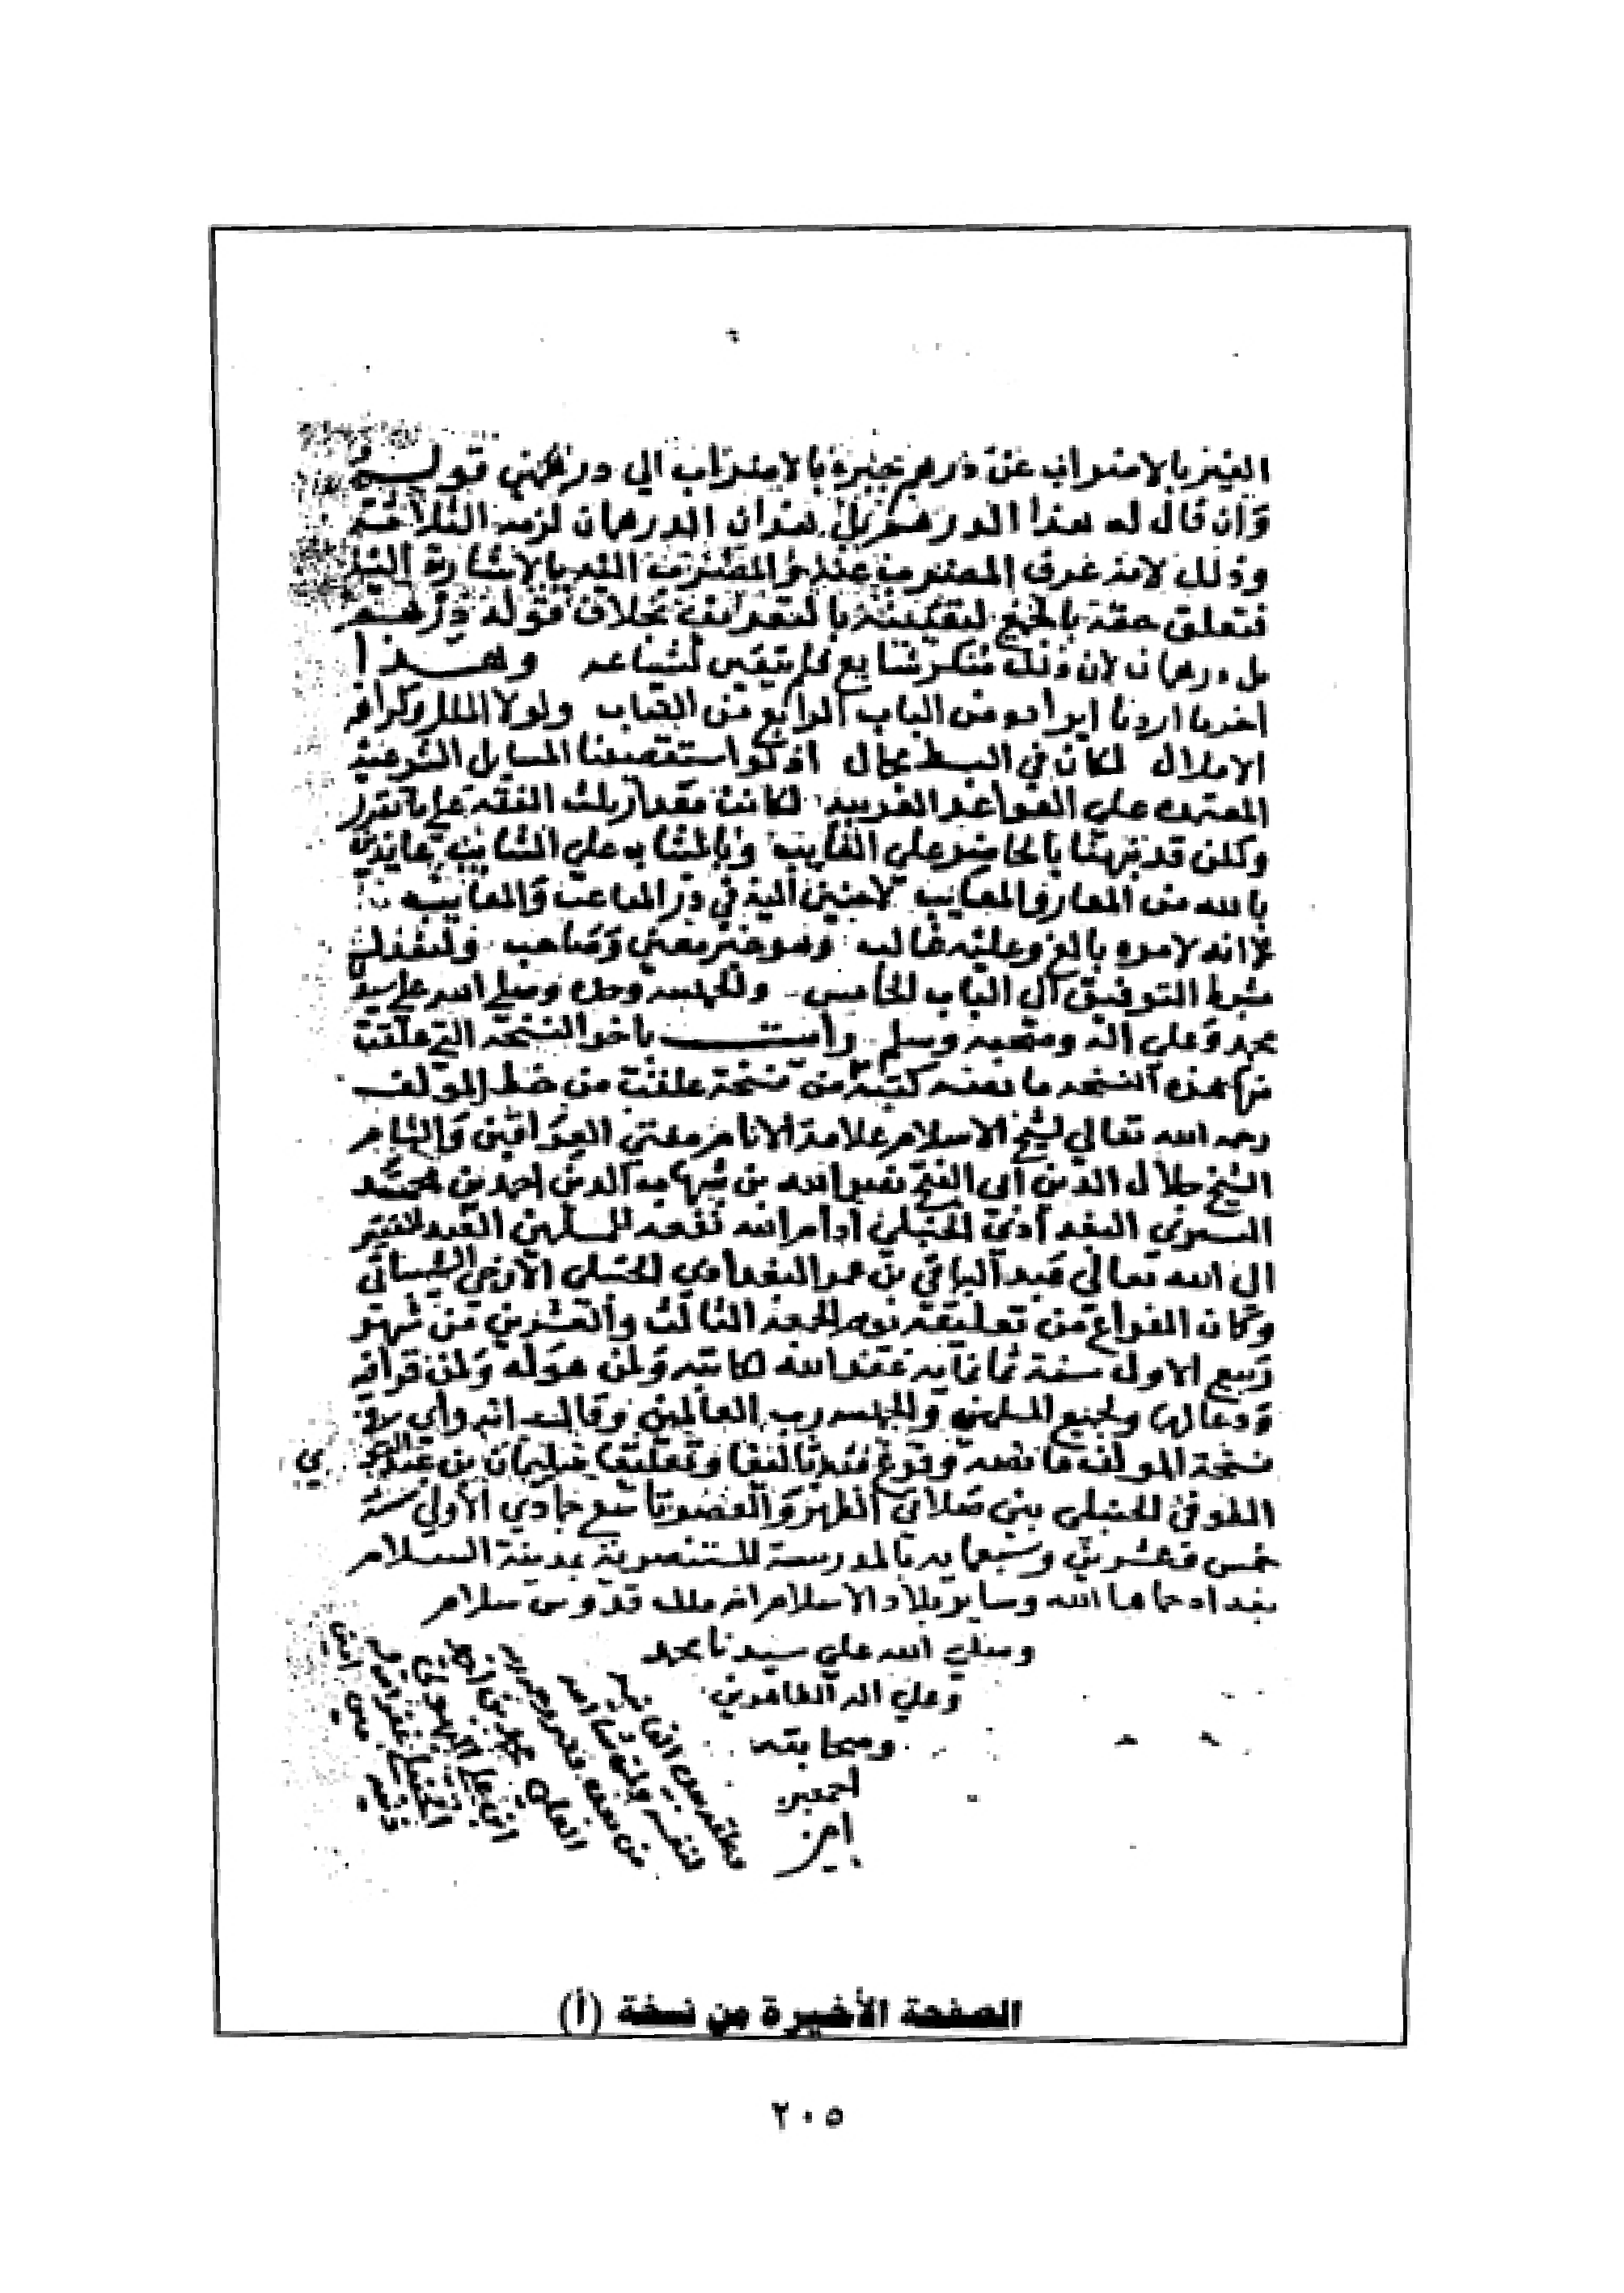 الغير بالاضراب عن درهم بخبره بالاضراب الي درهمين قوله
وان قال له هذا الدرهم بل هذان الدرهمان لزمه الثلاثة
وذلك لانه عرف المضروب عنه والمضروب اليه بالاشارة اليه
فتعلق حقه بالجميع لتعينه بالتعريف بخلاف قوله درهم
بل درهمان لان ذلك منكر شايع فلم يتعين لشياعه وهذا
اخر ما اردنا ايراده من الباب الرابع من الكتاب ولولا الملل وكراهة
الاملال لكان في البسط مجال اذ لو استقصينا المسايل الشرعية
المفرعة علي القواعد العربية لكانت مقدار ثلث الفقه علي ما تقرر
ولكن قد نبهنا بالحاضر علي الغايب وبالشاب علي الشايب عايذين
بالله من المعار والمعايب لاجئين اليه في درء المتاعب والمعايب
لا انه لامره بالغ وعليه غالب وهو خير معين وصاحب ولنعدل
بشرط التوفيق الي الباب الخامس والحمد لله وحده وصلي الله علي سيدنا
محمد وعلي اله وصحبه وسلم رايت باخر النسخة التي علقت
منها هذه النسخه ما نصه كتبه من نسخة علقت من خط المولف
رحمه الله تعالي لشيخ الاسلام علامة الانام مفتي العراقين والشام
الشيخ جلال الدين ابي الفتح نصر الله بن شهاب الدين احمد بن محمد
التستري البغدادي الحنبلي ادام الله نفعه للمسلمين العبد الفقير
الي الله تعالي عبد الباقي بن عمر البغدادي الحنبلي الازجي
وكان الفراغ من تعليقه يوم الجمعة الثالث والعشرين من شهر
ربيع الاول سنة ثمانمايه غفر الله لكاتبه ولمن هو له ولمن قرا فيه
ودعا لهما ولجميع المسلمين والحمد لله رب العالمين وقال انه راي في
نسخة المولف ما نصه وفرغ منه تاليفا وتعليقا سليمان بن عبد القوي
الطوفي الحنبلي بين صلاتي الظهر والعصر تاسع جمادي الاولي سنة
خمس وعشرين وسبعمايه بالمدرسة المستنصرية بمدينة السلام
بغداد حماها الله وساير بلاد الاسلام انه ملك قدوس سلام
وصلي الله علي سيدنا محمد
وعلي اله الطاهرين
وصحابته
اجمعين
امين
الصفحة الأخيرة من نسخة (أ)
٢٠٥